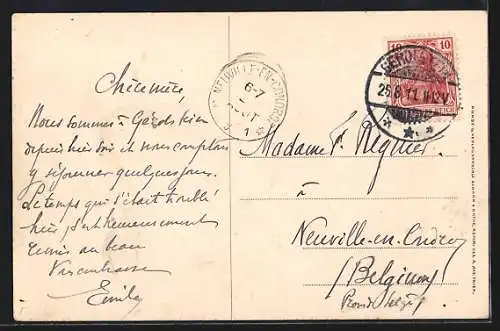 Chère mère,
Nous sommes à Gérolstein
depuis hier soir et nous comptons
y séjourner quelques jours.
Le temps qui s'était troublé
hier, s'est heureusement
remis au beau
Emile
NEUVILLE-EN-CONDROZ
6-7
AOUT
1
10
GEROLSTEIN
25.8.11. 11-12V
Madame F. Régnier
à
Neuville-en-Condroz
(Belgique)